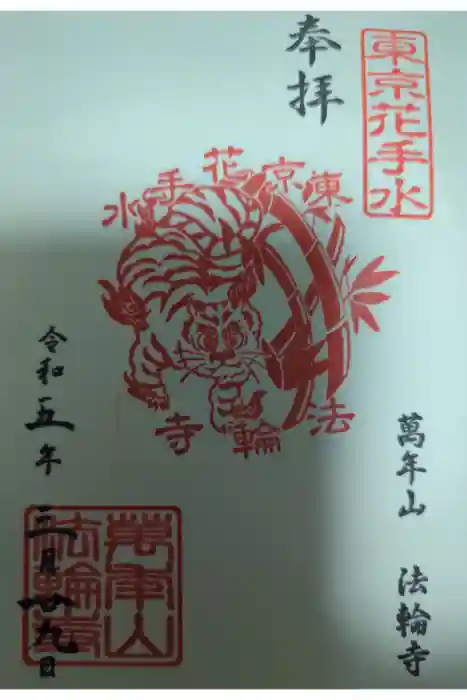 東京花手水
奉拝
東京花手水
法輪寺
萬年山 法輪寺
令和五年 三月廿九日
萬年山
法輪寺